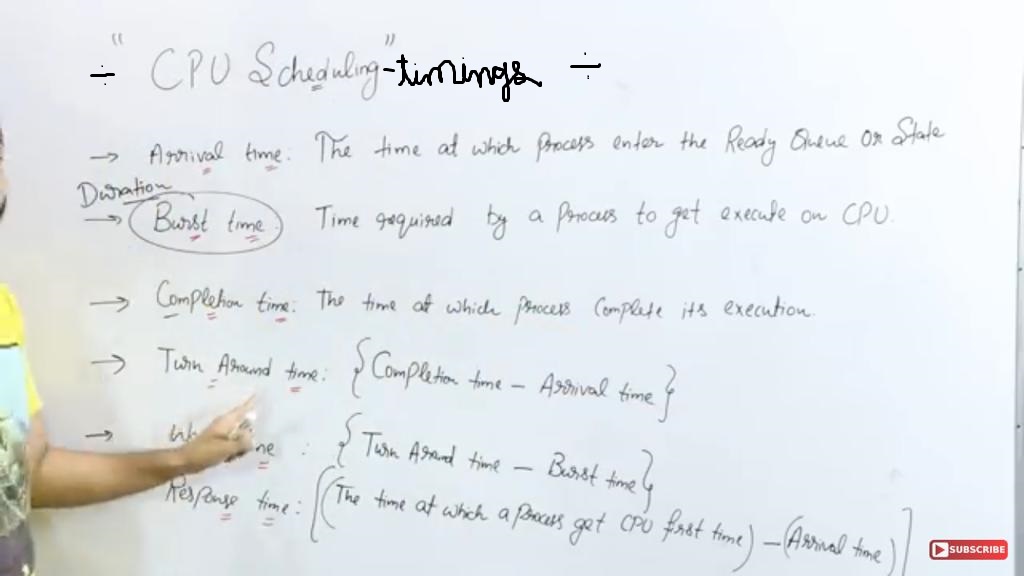 ÷ "CPU Scheduling"-timings ÷
→ Arrival time: The time at which Process enter the Ready Queue or State
Duration
→ Burst time Time required by a Process to get execute on CPU.
→ Completion time: The time at which process complete its execution.
→ Turn Around time: {Completion time – Arrival time}
→ : {Turn Around time – Burst time}
Response time: [(The time at which a process get CPU first time) – (Arrival time)]
SUBSCRIBE